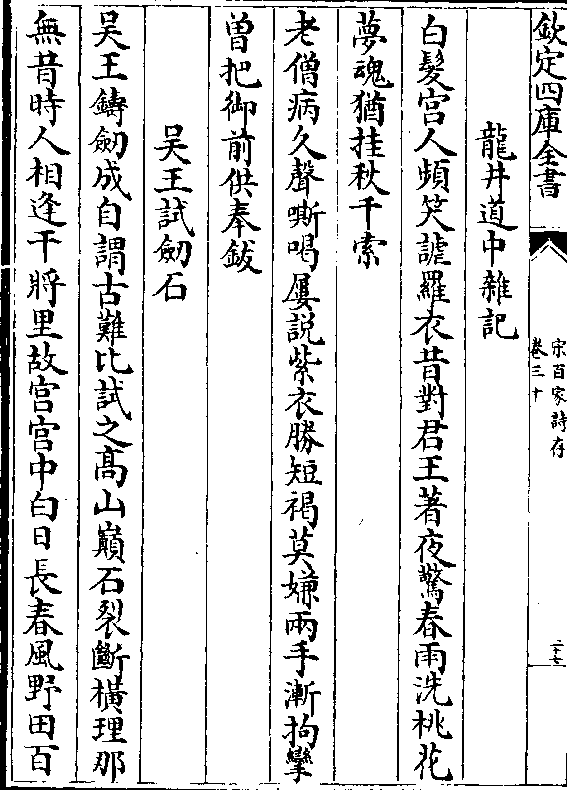 欽定四庫全書
宋百家詩存
卷三十
二十七
龍井道中雜記
白髮宫人頻笑謔羅衣昔對君王著夜驚春雨洗桃花
夢魂猶挂秋千索
老僧病久聲嘶喝屢説紫衣勝短褐莫嫌兩手漸拘攣
曽把御前供奉鈸
吴王試劒石
吴王鑄劒成自謂古難比試之髙山巔石裂斷橫理那
無昔時人相逢干將里故宫宫中白日長春風野田百